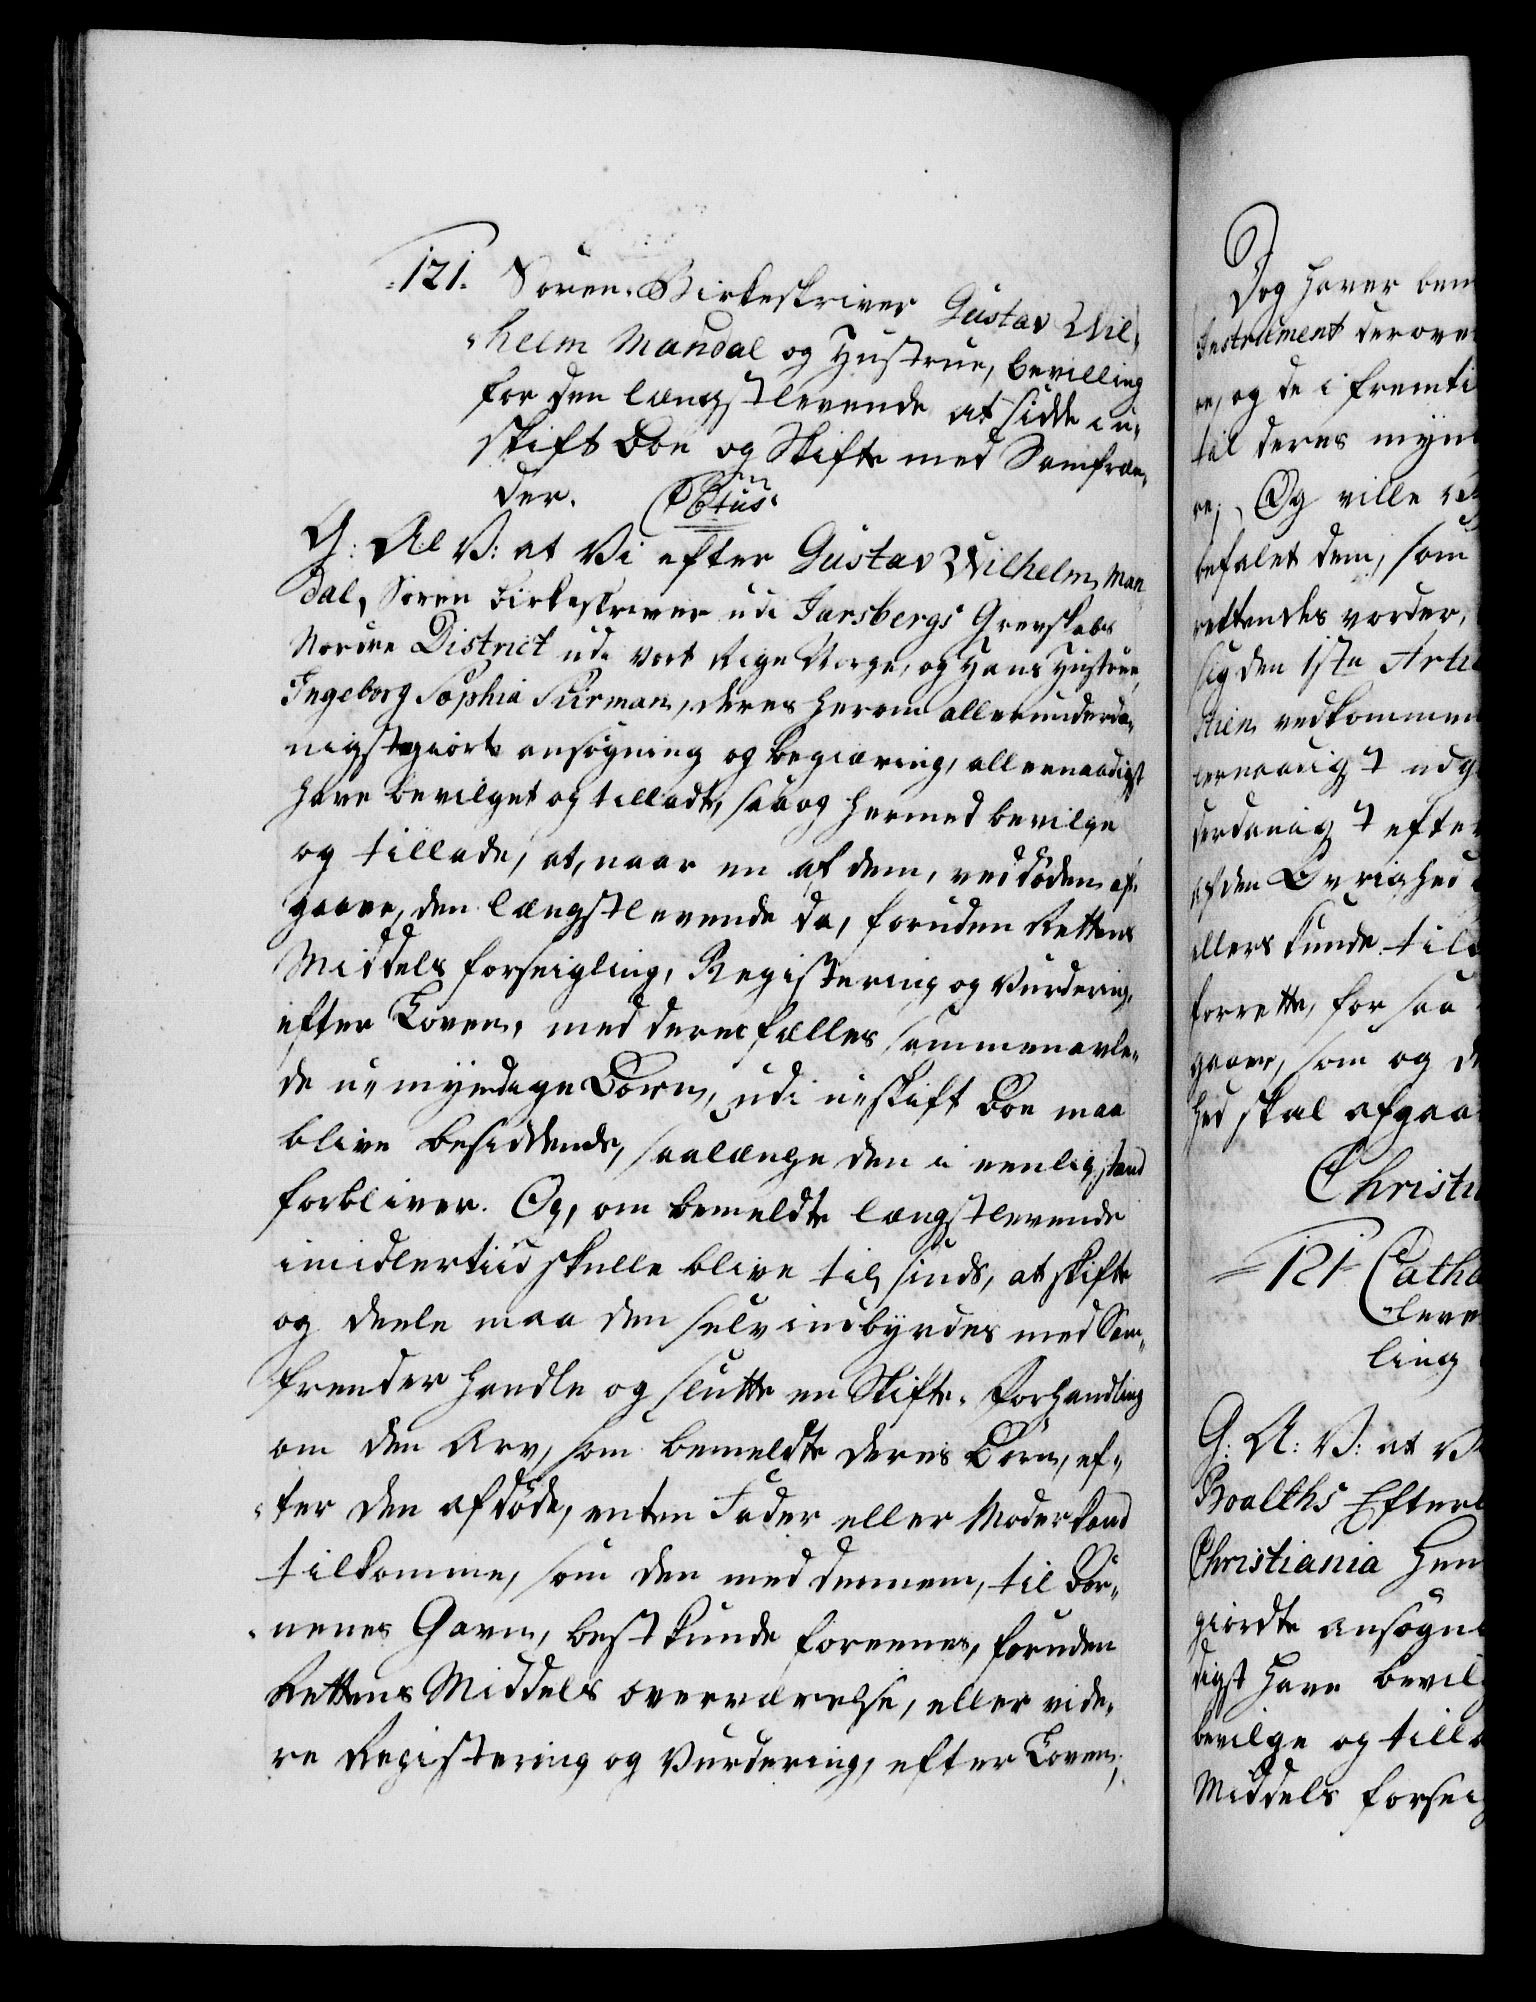 121. Soren-Birkeskriver Gustav Wil-
helm Mandal og Hustrue, bevilling
for den længstlevende at sidde i u-
skift Boe og Skifte med Samfræn-
der.
G: A: V: at Vi efter Gustav Wilhelm Man-
dal, Soren Birkeskriver udi Jarsbergs Grevskabs
Nordre District udi vort Rige Norge, og Hans Hustrue
Ingeborg Sophia Surman, deres herom allerunderda-
nigst giorte ansøgning og begiæring, allernaadigst
have bevilget og tilladt, saa og hermed bevilge
og tillade, at, naar en af dem, ved døden af-
gaaer, den længstlevende da, foruden Rettens
Middels forseigling, Registering og Vurdering,
efter Loven, med deres fælles sammenavle-
de u-myndige Børn, udi u-skift Boe maa
blive besiddende, saalænge den i eenlig stand
forbliver. Og, om bemeldte længstlevende
imidlertiid skulle blive til sinds, at skifte
og deele maa den selv indbyrdes med Sam-
frender handle og slutte en Skifte-Forhandling
om den Arv, som bemeldte deres Børn, ef-
ter den afdøde, enten Fader eller Moder kand
tilkomme, som den med dennem, til Bør-
nenes Gavn, best kunde foreenes, foruden
Rettens Middels overværelse, eller vide-
re Registering og Vurdering, efter Loven;
Dog haver bem
Instrument derove
re, og de i fremti
til deres mynd
re; Og ville
befalet dem, som
rettendes vorder,
sig den 1ste Arti
vedkommen
lernaadigst udg
derdanigst efter
af den Øvrighed
ellers kunde til
forrette, for saa
gaaer, som og d
hed skal afgaa
Christi
121 Catha
leve
ling
G: A: V: at V
Roalths Efterl
Christiania Hen
giordte ansøgn
digst have bevil
bevilge og tilla
Middels forseig